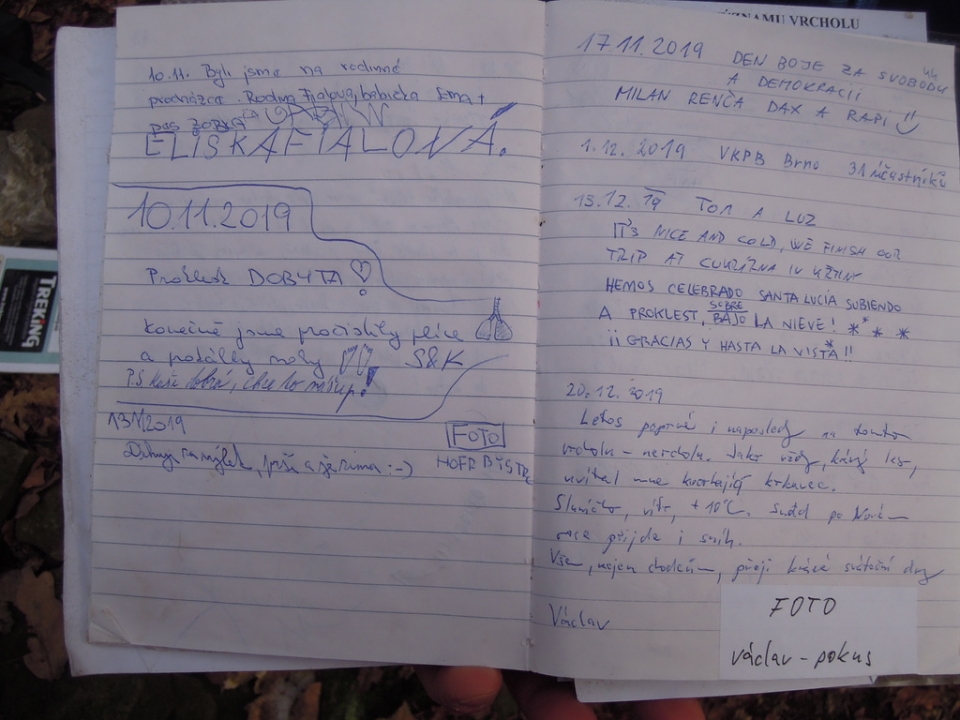 10.11. Byli jsme na rodinné
procházce. Rodina Fialova, babička Ema +
pes
ELIŠKA FIALOVÁ.
10.11.2019
DOBYTA!
Konečně jsme pročistily plíce
a potáhly nohy S&K
P.S.
13.11.2019
FOTO
HOFR
TREKING
ZNAMU VRCHOLU
17.11.2019 DEN BOJE ZA SVOBODU
A DEMOKRACII
MILAN RENČA DAX A RAPI !!
1.12.2019 VKPB Brno 31 účastníků
13.12.19 TOM A LUZ
IT'S NICE AND COLD, WE FINISH OUR
TRIP AT
HEMOS CELEBRADO SANTA LUCIA SUBIENDO
A PROKLEST, SOBRE BAJO LA NIEVE! * * * *
¡¡ GRACIAS Y HASTA LA VISTA !!
20.12.2019
Letos poprvé i naposledy na tomto
vrcholu - nevrcholu. Jako vždy, krásný les,
uvítal mne krkavec.
Sluníčko, vítr, +10°C. Snad po Nové
roce přijde i sníh.
Všem, nejen chodcům, přeji krásné sváteční dny
Václav
FOTO
václav - pokus